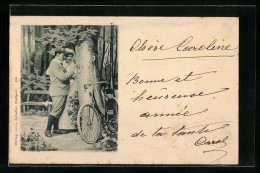 Chère Caroline
Bonne et
heureuse
année
de ta tante